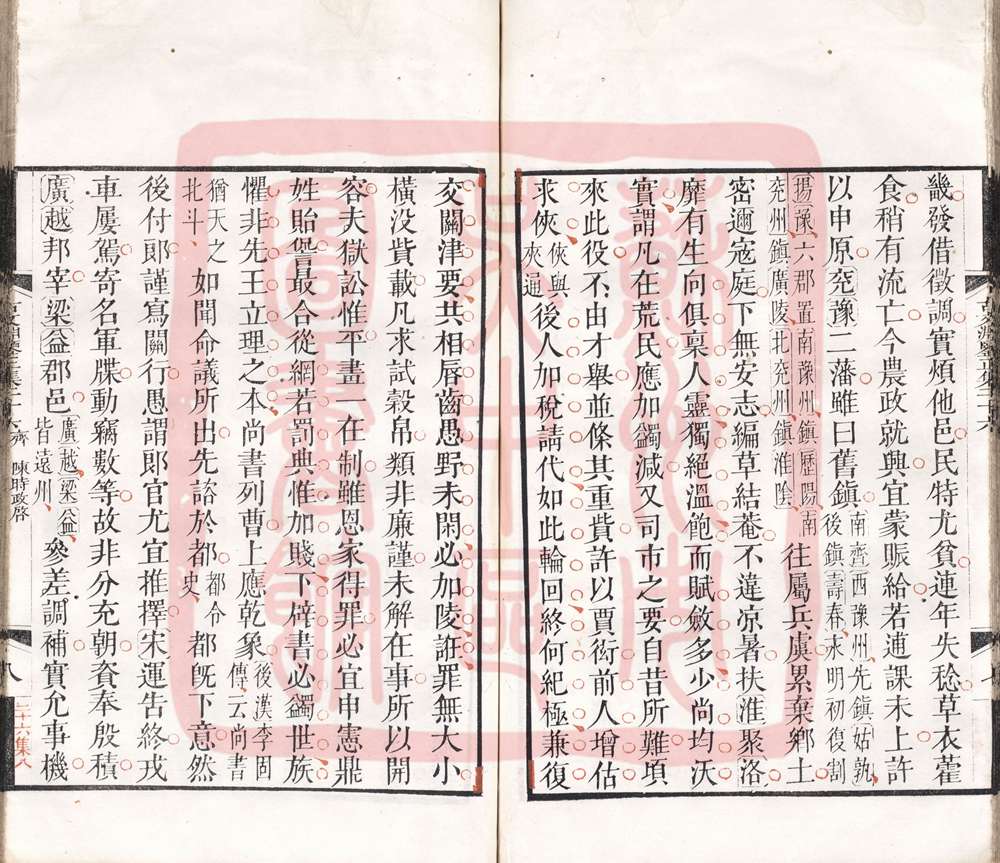 畿發借徵調實煩他邑民特尤貧連年失稔草衣藿
食稍有流亡今農政就興宜蒙賑給若逋課未上許
以申原兗豫二藩雖曰舊鎮南齊西豫州先鎮姑孰後鎮壽春永明初復割
揚豫六郡置南豫州鎮歷陽南兗州鎮廣陵北兗州鎮淮陰往屬兵虞累棄鄉土
密邇寇庭下無安志編草結菴不違涼暑扶淮聚洛
靡有生向俱稟人靈獨絕溫飽而賦斂多少尚均沃
實謂凡在荒民應加蠲減又司市之要自昔所難頃
來此役不由才舉並條其重貲許以賈衒前人增估
求俠俠與夾通後人加稅請代如此輪回終何紀極兼復
交關津要共相脣齒愚野未閑必加陵誑罪無大小
橫沒貲載凡求試穀帛類非廉謹未解在事所以開
容夫獄訟惟平畫一在制雖恩家得罪必宜申憲鼎
姓貽諐最合從網若罰典惟加賤下辟書必蠲世族
懼非先王立理之本尚書列曹上應乾象後漢李固傳云尚書
猶天之北斗如聞命議所出先諮於都都令史都既下意然
後付郎謹寫關行愚謂郎官尤宜推擇宋運告終戎
車屢駕寄名軍牒動竊數等故非分充朝資奉殷積
廣越邦宰梁益郡邑廣越梁益皆遠州參差調補實允事機
齊
陳時政啓
八
二十六集八